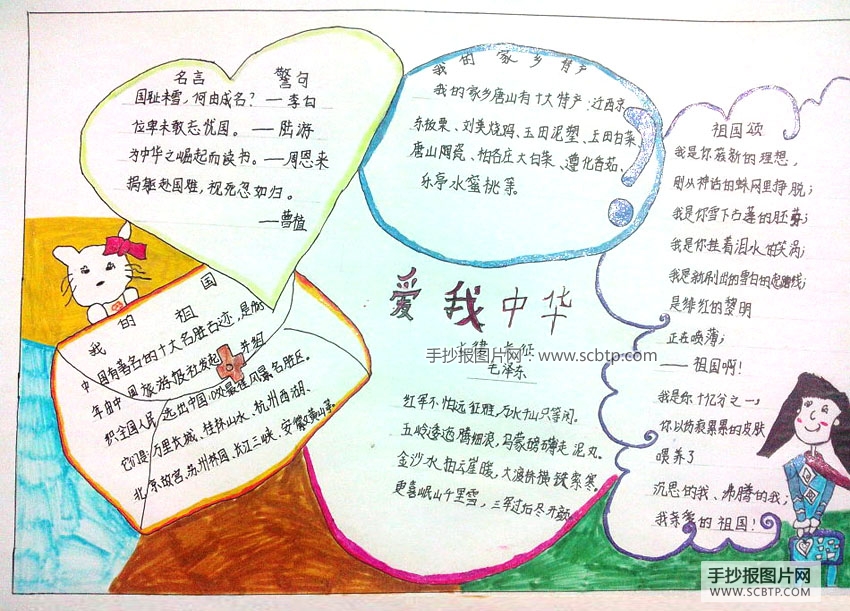 名言 警句
国耻未雪,何由成名?—李白
位卑未敢忘忧国。—陆游
为中华之崛起而读书。—周恩来
捐躯赴国难,视死忽如归。
—曹植
我的家乡特产
我的家乡唐山有十大特产:迁西京
东板栗、刘美烧鸡、玉田泥塑、玉田白菜、
唐山陶瓷、柏各庄大白菜、遵化香菇、
乐亭水蜜桃等。
祖国颂
我是你簇新的理想,
刚从神话的蛛网里挣脱;
我是你雪下古莲的胚芽;
我是你挂着泪水的笑涡;
我是新刷出的雪白的起跑线;
是绯红的黎明
正在喷薄;
— 祖国啊!
我是你十亿分之一,
你以伤痕累累的
喂养了
沉思的我、沸腾的我;
我亲爱的祖国!
我的祖国
中国有著名的十大名胜古迹,是
年由中国旅游报社发起 并组
织全国人民 选出中国10处最佳风景名胜区。
它们是:万里长城、桂林山水、杭州西湖、
北京故宫、苏州林园、长江三峡、安徽黄山等。
爱我中华
七律 长征
毛泽东
红军不怕远征难,万水千山只等闲。
五岭逶迤腾细浪,乌蒙磅礴走泥丸。
金沙水拍云崖暖,大渡桥横铁索寒。
更喜岷山千里雪,三军过后尽开颜。
手抄报图片网:www.scbtp.com
手抄报图片网
WWW.SCBTP.COM